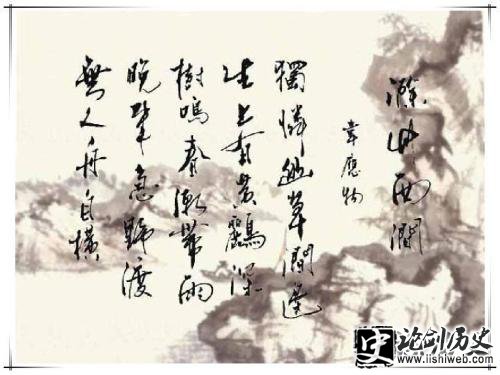 滁州西澗
韋應物
獨憐幽草澗邊
生上有黃鸝深
樹鳴春潮帶雨
晚來急野渡
無人舟自橫
史 论剑历史
www.lishiweb.com